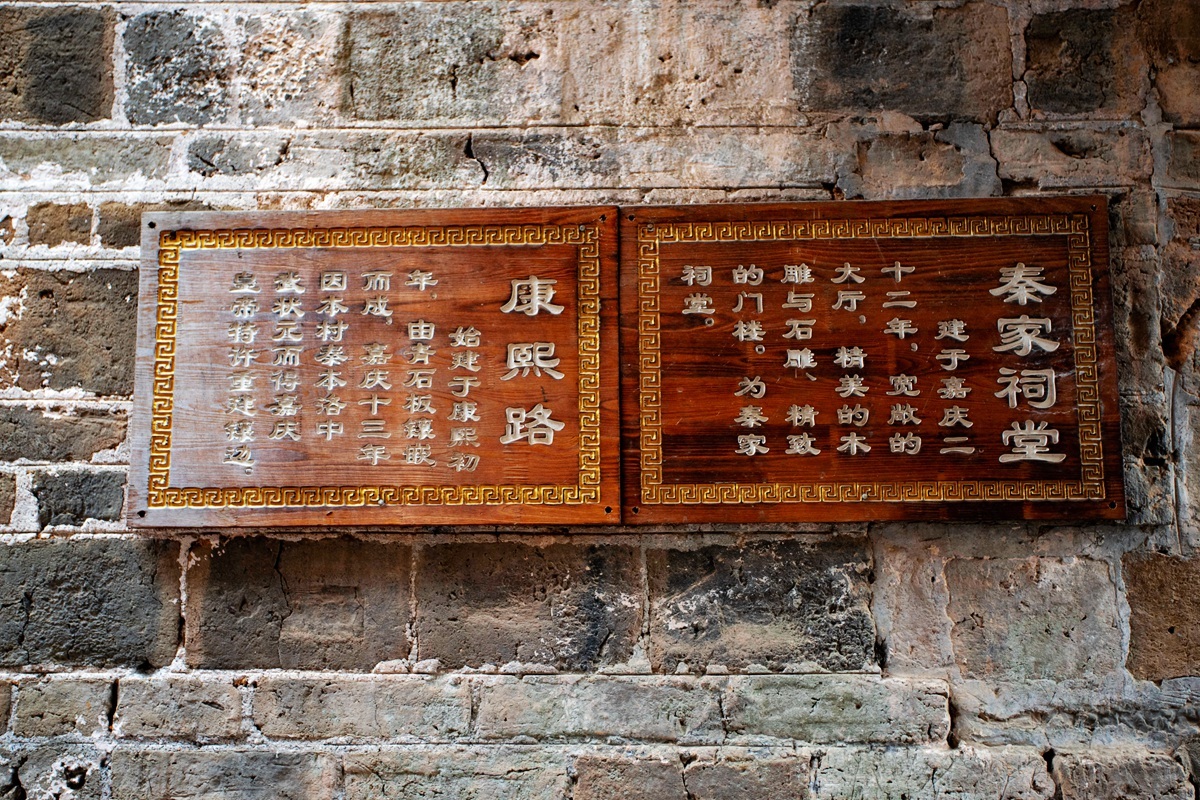 秦家祠堂
建于嘉庆二
十二年，宽敞的
大厅，精美的木
雕与石雕，精致
的门楼。为秦家
祠堂。
康熙路
始建于康熙初
年，由青石板镶嵌
而成，嘉庆十三年
因本村举本洛中
武状元而得嘉庆
皇帝特许重建镶边。